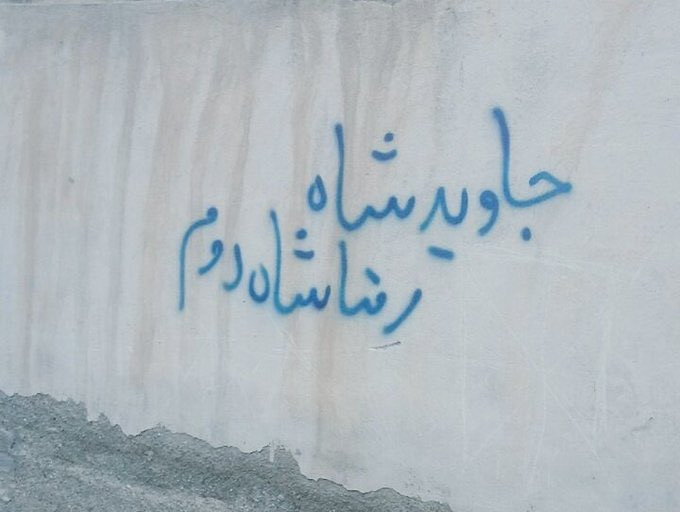 جاوید شاه
رضا شاه دوم